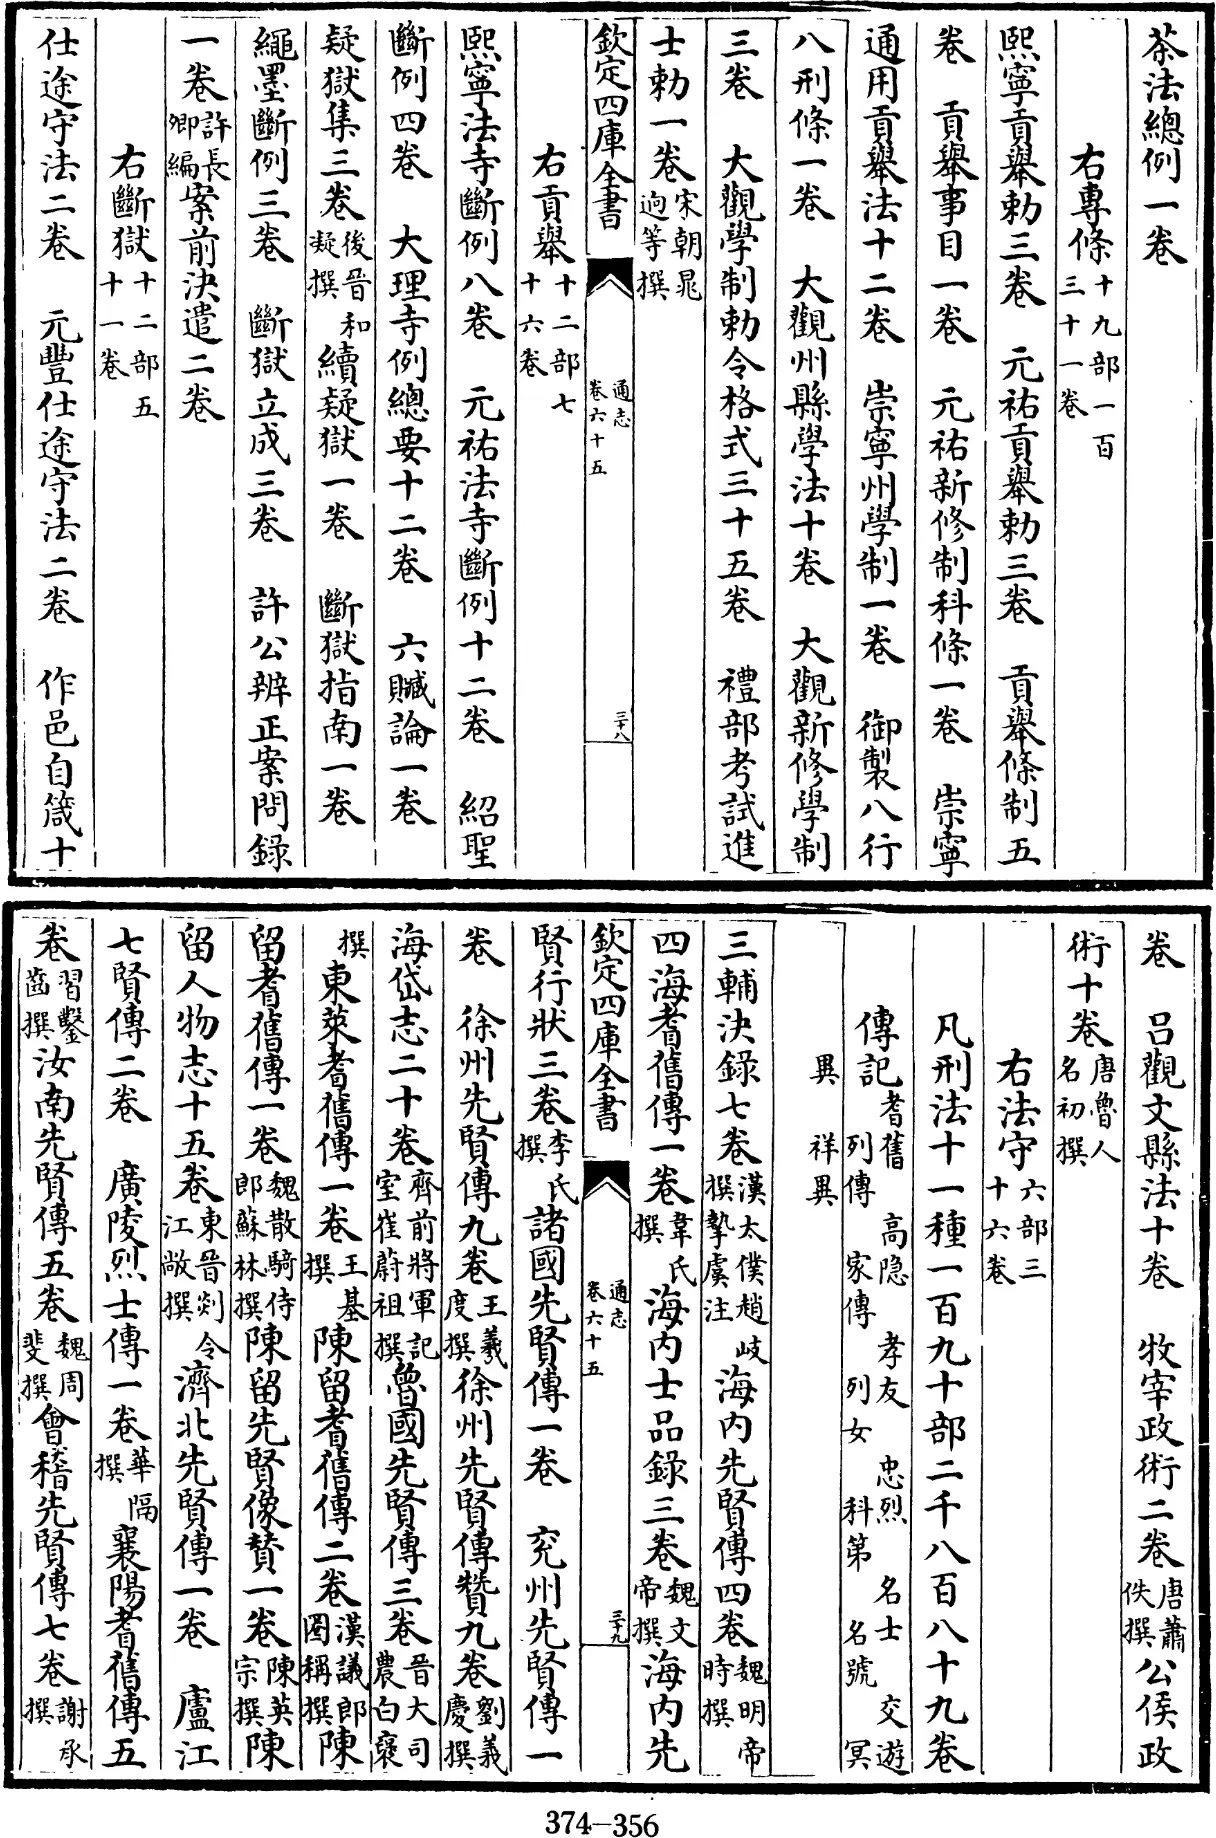 茶法總例一卷
右專條十九部一百三十一卷
熙寧貢舉勅三卷　元祐貢舉勅三卷　貢舉條制五
卷　貢舉事目一卷　元祐新修制科條一卷　崇寧
通用貢舉法十二卷　崇寧州學制一卷　御製八行
八刑條一卷　大觀州縣學法十卷　大觀新修學制
三卷　大觀學制勅令格式三十五卷　禮部考試進
士勅一卷宋朝晁逈等撰
右貢舉十二部七十六卷
欽定四庫全書　通志卷六十五　三十八
熙寧法寺斷例八卷　元祐法寺斷例十二卷　紹聖
斷例四卷　大理寺例總要十二卷　六贓論一卷
疑獄集三卷後晉和凝撰續疑獄一卷　斷獄指南一卷
繩墨斷例三卷　斷獄立成三卷　許公辨正案問録
一卷許長卿編案前決遣二卷
右斷獄十二部五十一卷
仕途守法二卷　元豐仕途守法二卷　作邑自箴十
卷　呂觀文縣法十卷　牧宰政術二卷唐蕭佚撰公侯政
術十卷唐魯人名初撰
右法守六部三十六卷
凡刑法十一種一百九十部二千八百八十九卷
傳記耆舊　高隐　孝友　忠烈　名士　交遊　列傳　家傳　列女　科第　名號　冥
異　祥異
三輔決録七卷漢太僕趙岐撰摯虞注海内先賢傳四卷魏明帝時撰
四海耆舊傳一卷韋氏撰海内士品録三卷魏文帝撰海内先
欽定四庫全書　通志卷六十五　三十九
賢行狀三卷李氏撰諸國先賢傳一卷　兖州先賢傳一
卷　徐州先賢傳九卷王羲度撰徐州先賢傳贊九卷劉義慶撰
海岱志二十卷齊前將軍記室崔蔚祖撰魯國先賢傳三卷晉大司農白裦
撰東萊耆舊傳一卷王基撰陳留耆舊傳二卷漢議郎圏稱撰陳
留耆舊傳一卷魏散騎侍郎蘇林撰陳留先賢像贊一卷陳英宗撰陳
留人物志十五卷東晉剡令江敞撰濟北先賢傳一卷　廬江
七賢傳二卷　廣陵烈士傳一卷華隔撰襄陽耆舊傳五
卷習鑿齒撰汝南先賢傳五卷魏周斐撰會稽先賢傳七卷謝承撰
374-356